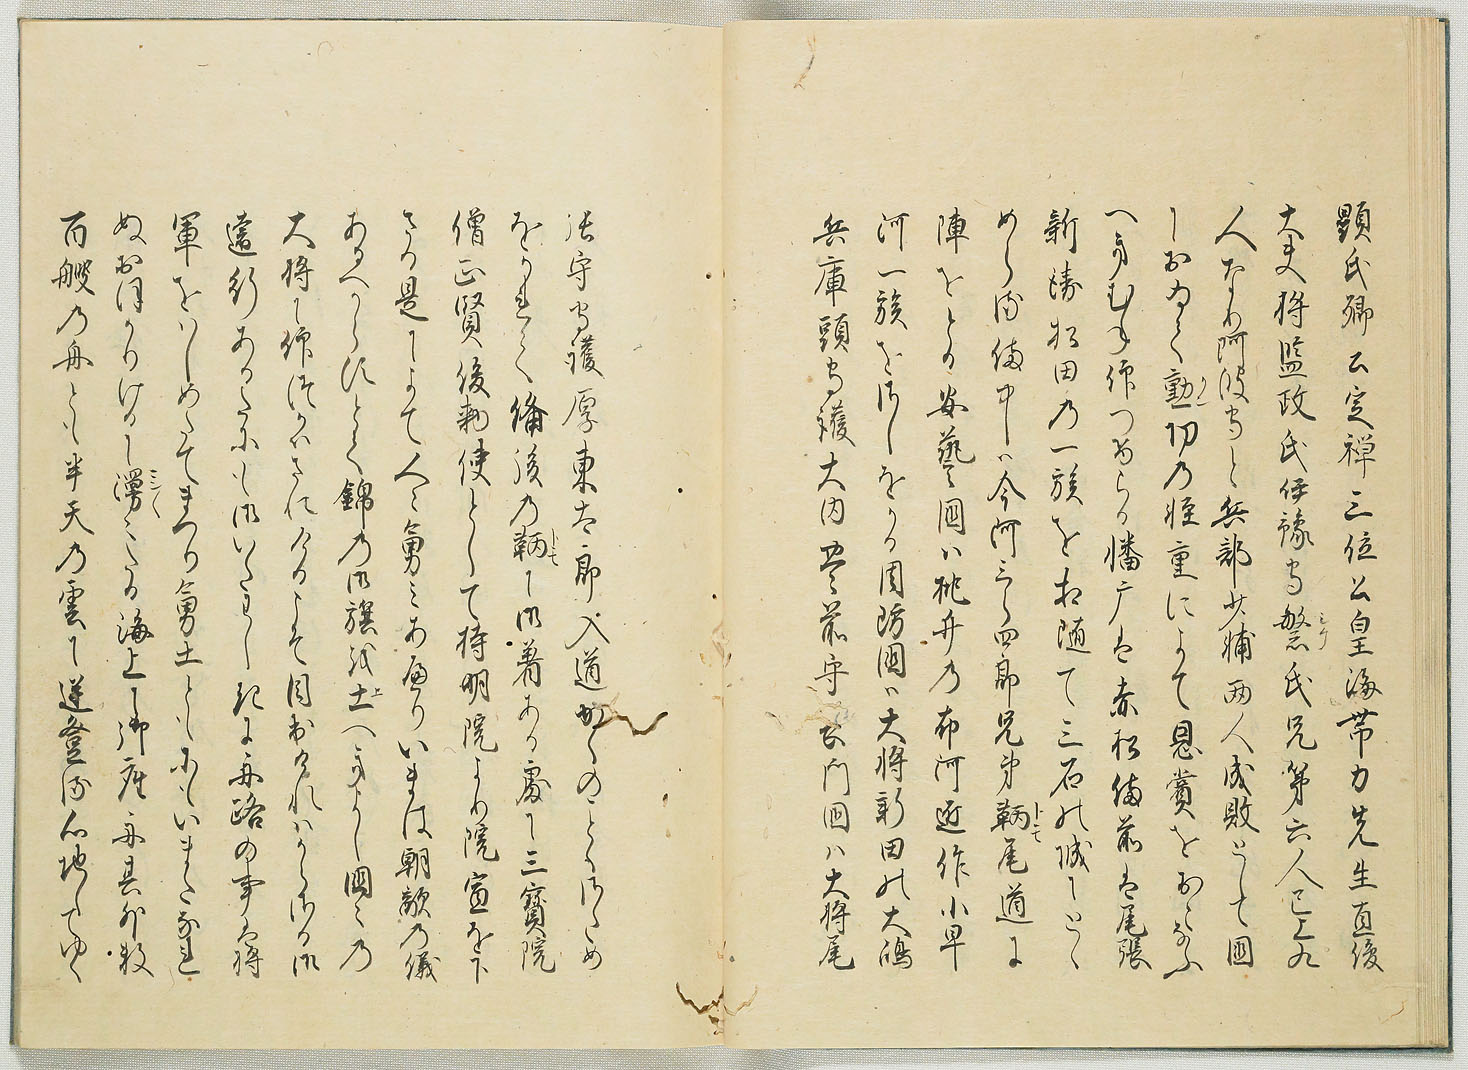 顕氏卿公定禅三位公皇海帯刀先生直俊
大夫将監政氏伊豫守繁氏兄弟六人已上九
人なり阿波守と兵部少輔両人成敗として国
におゐて勲功の軽重によて恩賞をおこなふ
へきむね仰つけらる幡广は赤松備前は尾張
新 松田の一族を相随て三石の城にとゝ
めらる備中には今河三郎四郎兄弟鞆尾道に
陣をとる安藝国は桃井の布河匠作小早
河一族をさしをく周防国は大将新田の大嶋
兵庫頭守護大内豊前守長門国は大将尾
張守守護厚東太郎入道かくのことくさため
をかれて備後の鞆に御着ある處に三寳院
僧正賢俊勅使として持明院より院宣を下
さる是によて人々勇みあへりいまは朝敵の儀
あるへからすとて錦の御旗を 上へきよし国々の
大将に仰つかはされけるこそ目出けれ はる御
遠行あるたにも御いたはしきに舟路の事は将
軍をはしめたてまつり勇士ともにもいまたなれ
ぬおほかりけるに漫々たる海上に御座舟其外数
百艘の舟とも半天の雲に逆登る心地してゆく